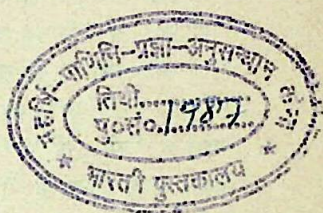 महर्षि-पाणिनि-प्रज्ञा-अनुसन्धान केन्द्र
तिथी..............
पु०सं०.1987
* भारती पुस्तकालय *